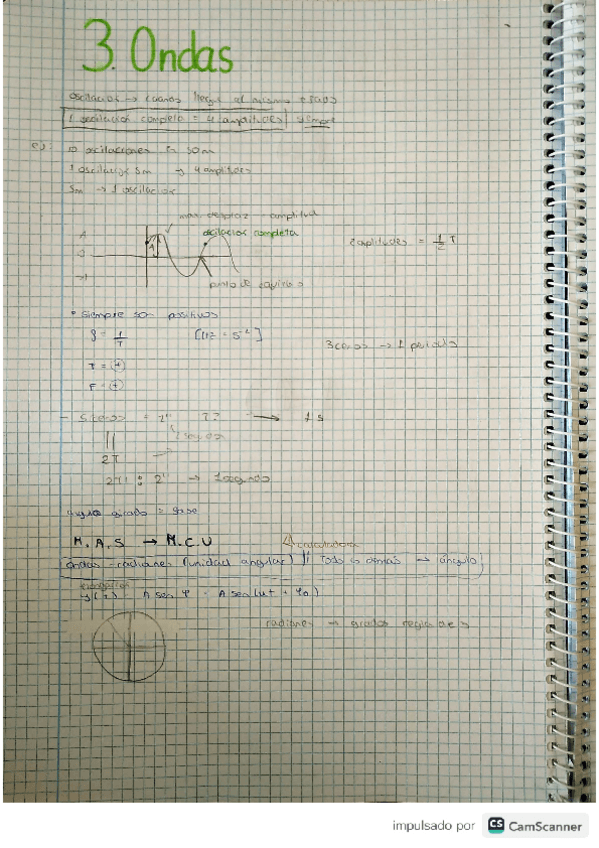 3. Ondas
oscilación → cuando llegue al mismo estado
1 oscilación completa = 4 amplitudes siempre
ej: 10 oscilaciones en 50m
1 oscilación 5m → 4 amplitudes
5m → 1 oscilación
max. desplaz amplitud
oscilación completa
A
A
0
-A
2 amplitudes = 1/2 T
punto de equilibrio
• siempre son positivos
f = 1/T [Hz = s⁻¹]
3 ceros → 1 periodo
T = +
F = +
- 5 ceros = 2" T? → 1 s
2T
2T : 2" → 1 segundo
ángulo girado = fase
M.A.S → M.C.U
calculadora
ondas - radianes (unidad angular) // Todo lo demás → ángulo
elongación
y(t) = A sen φ = A sen (ωt + φ₀)
radianes → grados regla de 3
impulsado por CS CamScanner